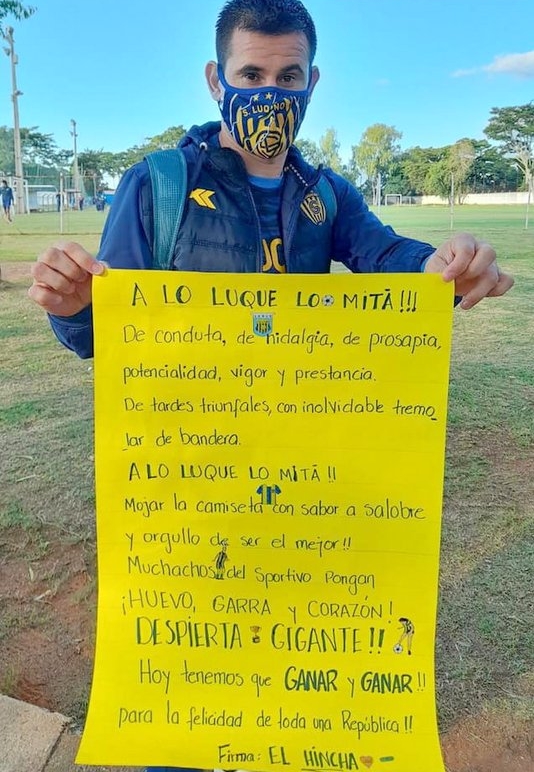 S. LUQUEÑO
A LO LUQUE LO MITÃ!!!
De conduta, de hidalgia, de prosapia,
potencialidad, vigor y prestancia.
De tardes triunfales, con inolvidable tremo_
lar de bandera.
A LO LUQUE LO MITÃ!!
Mojar la camiseta con sabor a salobre
y orgullo de ser el mejor!!
Muchachos del Sportivo Pongan
¡HUEVO, GARRA y CORAZÓN!
DESPIERTA GIGANTE!!
Hoy tenemos que GANAR y GANAR!!
para la felicidad de toda una República!!
Firma: EL HINCHA